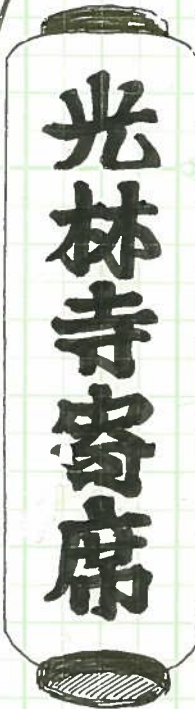 光林寺寄席